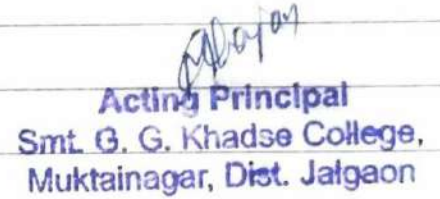 Acting Principal
Smt. G. G. Khadse College,
Muktainagar, Dist. Jalgaon